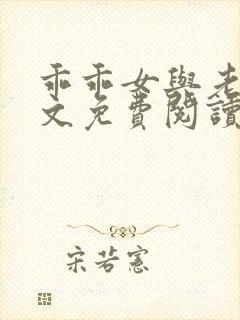 乖乖女與老
文免費閱讀
宋若憲